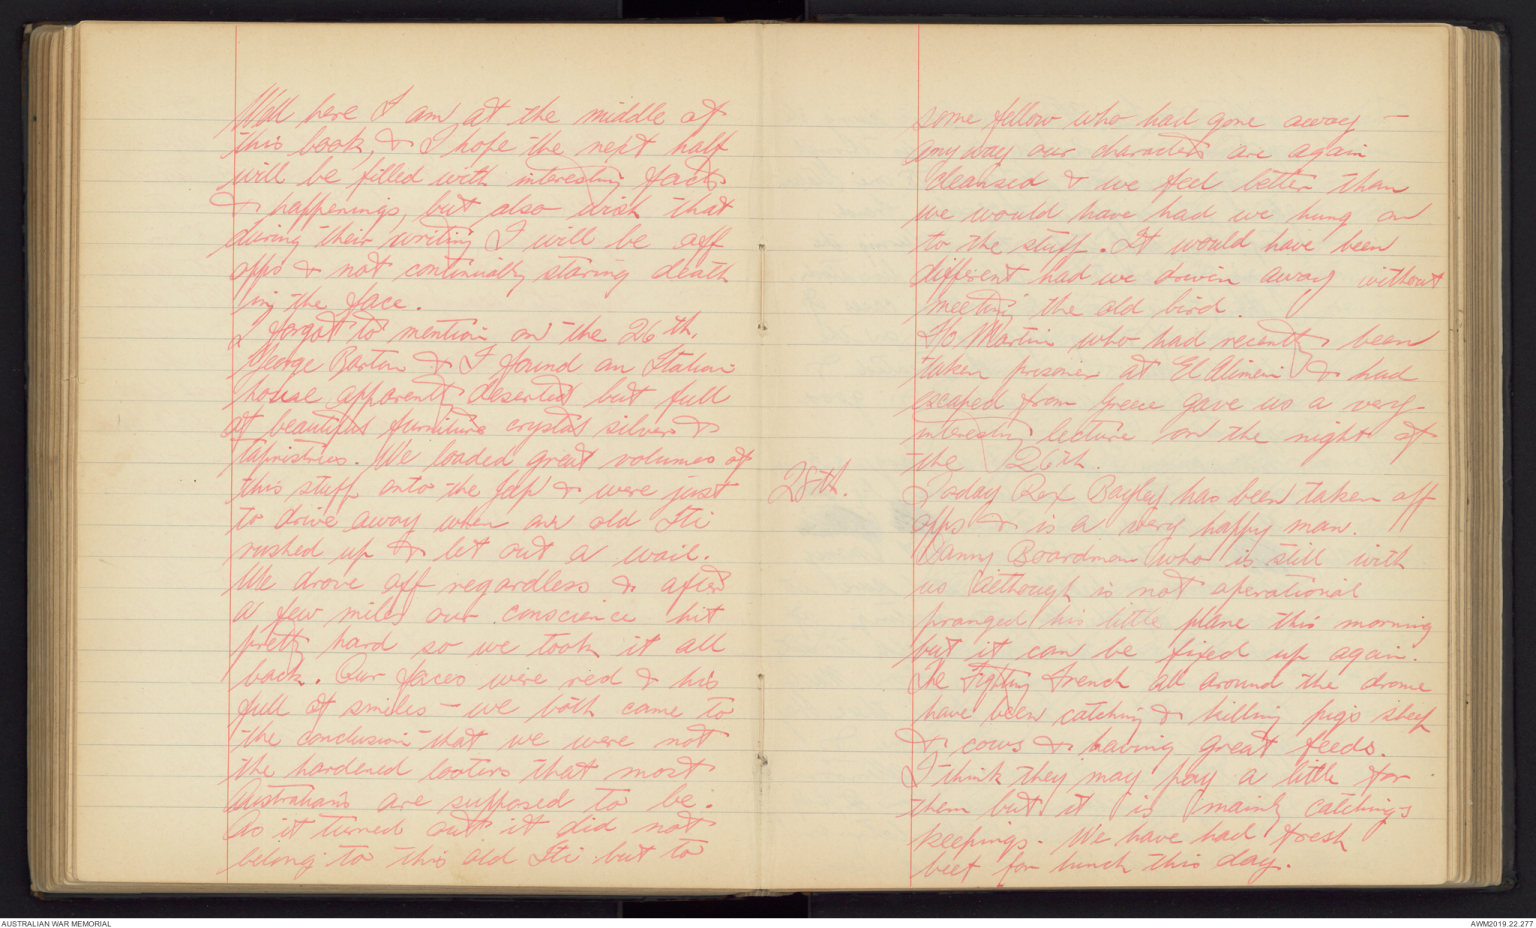 Well here I am at the middle of
this book, & I hope the next half
will be filled with interesting facts
& happenings, but also wish that
during their writing I will be off
opps & not continually staring death
in the face.
I forgot to mention on the 26th.
George Barton & I found an Itation
house apparently deserted but full
of beautiful furniture crystal silver &
tapistries. We loaded great volumes of
this stuff onto the jeep & were just
to drive away when an old Iti
rushed up & let out a wail.
We drove off regardless & after
a few miles our conscience hit
pretty hard so we took it all
back. Our faces were red & his
full of smiles - we both came to
the conclusion that we were not
the hardened looters that most
Australians are supposed to be.
As it turned out it did not
belong to this old Iti but to
some fellow who had gone away -
anyway our characters are again
cleansed & we feel better than
we would have had we hung on
to the stuff. It would have been
different had we driven away without
meeting the old bird.
F/O Martin who had recently been
taken prisoner at El Alimein & had
escaped from Greece gave us a very
interesting lecture on the night of
the 26th.
28th. Today Rex Bayley has been taken off
opps & is a very happy man.
Danny Boardman who is still with
us although is not operational
pranged his little plane this morning
but it can be fixed up again.
The Fighting French all around the drome
have been catching & killing pigs sheep
& cows & having great feeds.
I think they may pay a little for
them but it is mainly catchings
keepings. We have had fresh
beef for lunch this day.
AUSTRALIAN WAR MEMORIAL
AWM2019.22.277